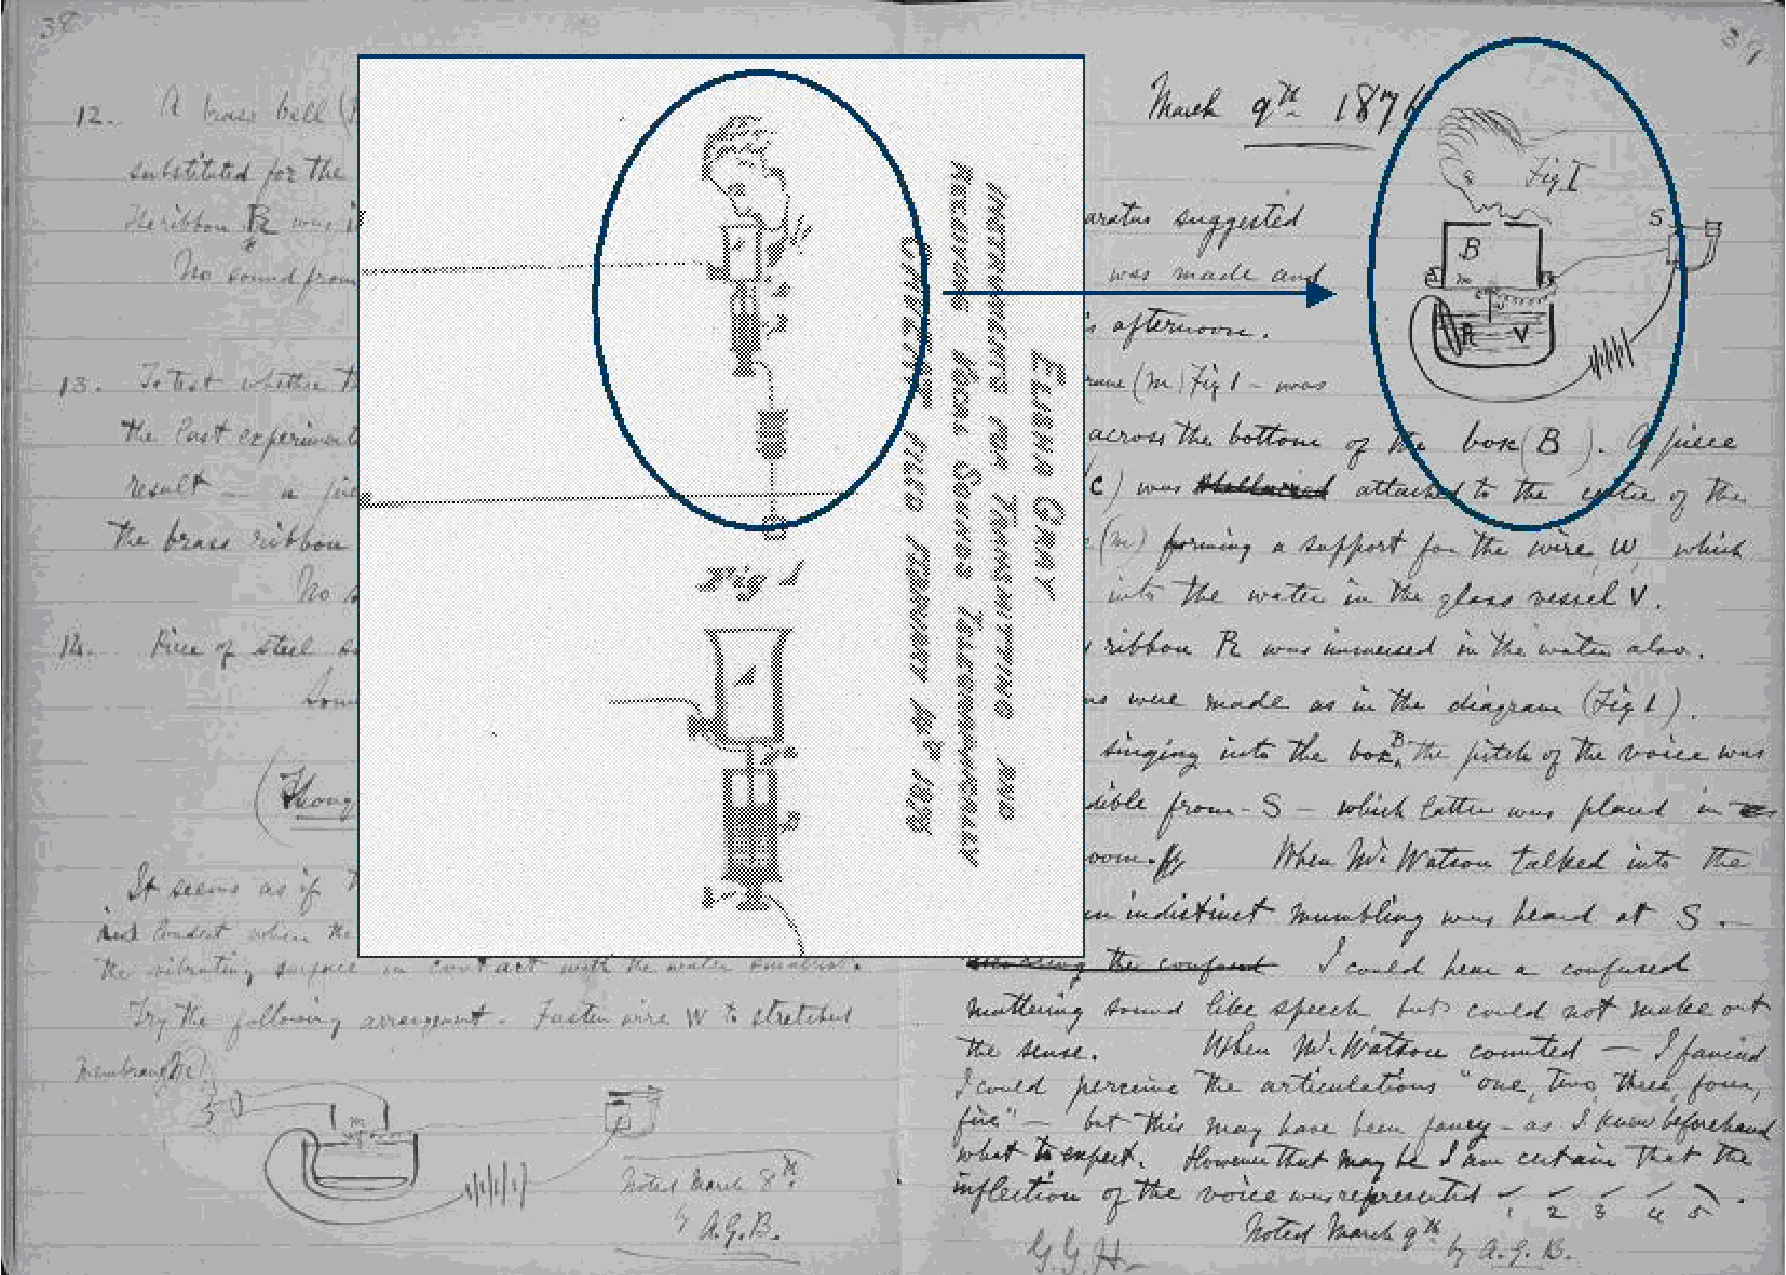 38
12. A brass bell
substituted for the
The ribbon R was
No sound from
13. To test whether
the last experiment
result —
the brass ribbon
No
14. Piece of steel
It seems as if
loudest when the
the vibrating surface in contact with the water
Try the following arrangement. Fasten wire W to stretched
membrane
m
Noted March 8th
by A.G.B.
ELISHA GRAY
INSTRUMENTS FOR TRANSMITTING AND
RECEIVING VOCAL SOUNDS TELEGRAPHICALLY
CAVEAT FILED FEBRUARY 14th 1876
A
Fig 1
A
39
March 9th 1876
Fig I
S
B
m
R V
apparatus suggested
was made and
afternoon.
(m) Fig 1 — was
across the bottom of the box (B). A piece
(c) was attached to the centre of the
(m) forming a support for the wire W which
into the water in the glass vessel V.
ribbon R was immersed in the water also.
were made as in the diagram (Fig 1).
singing into the box B, the pitch of the voice was
from — S — which latter was placed in
When Mr. Watson talked into the
an indistinct mumbling was heard at S. —
the confused I could hear a confused
muttering sound like speech but could not make out
the sense. When Mr. Watson counted — I fancied
I could perceive the articulations "one, two, three, four,
five" — but this may have been fancy — as I knew beforehand
what to expect. However that may be I am certain that the
inflection of the voice was represented
1 2 3 4 5
Noted March 9th
G.G.H. by A.G.B.